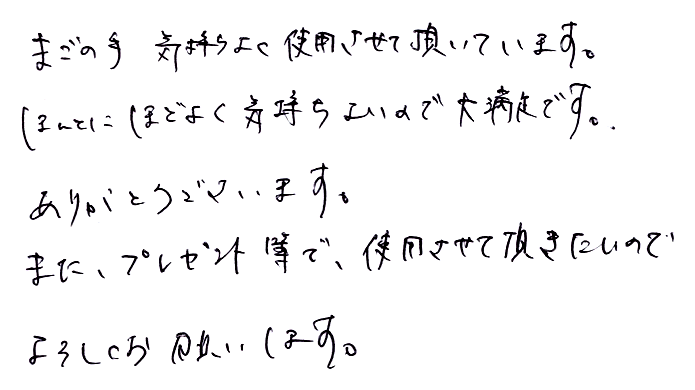 まごの手 気持ちよく使用させて頂いています。
ほんとにほどよく気持ちよいので大満足です。
ありがとうございます。
また、プレゼント等で、使用させて頂きたいので
よろしくお願いします。